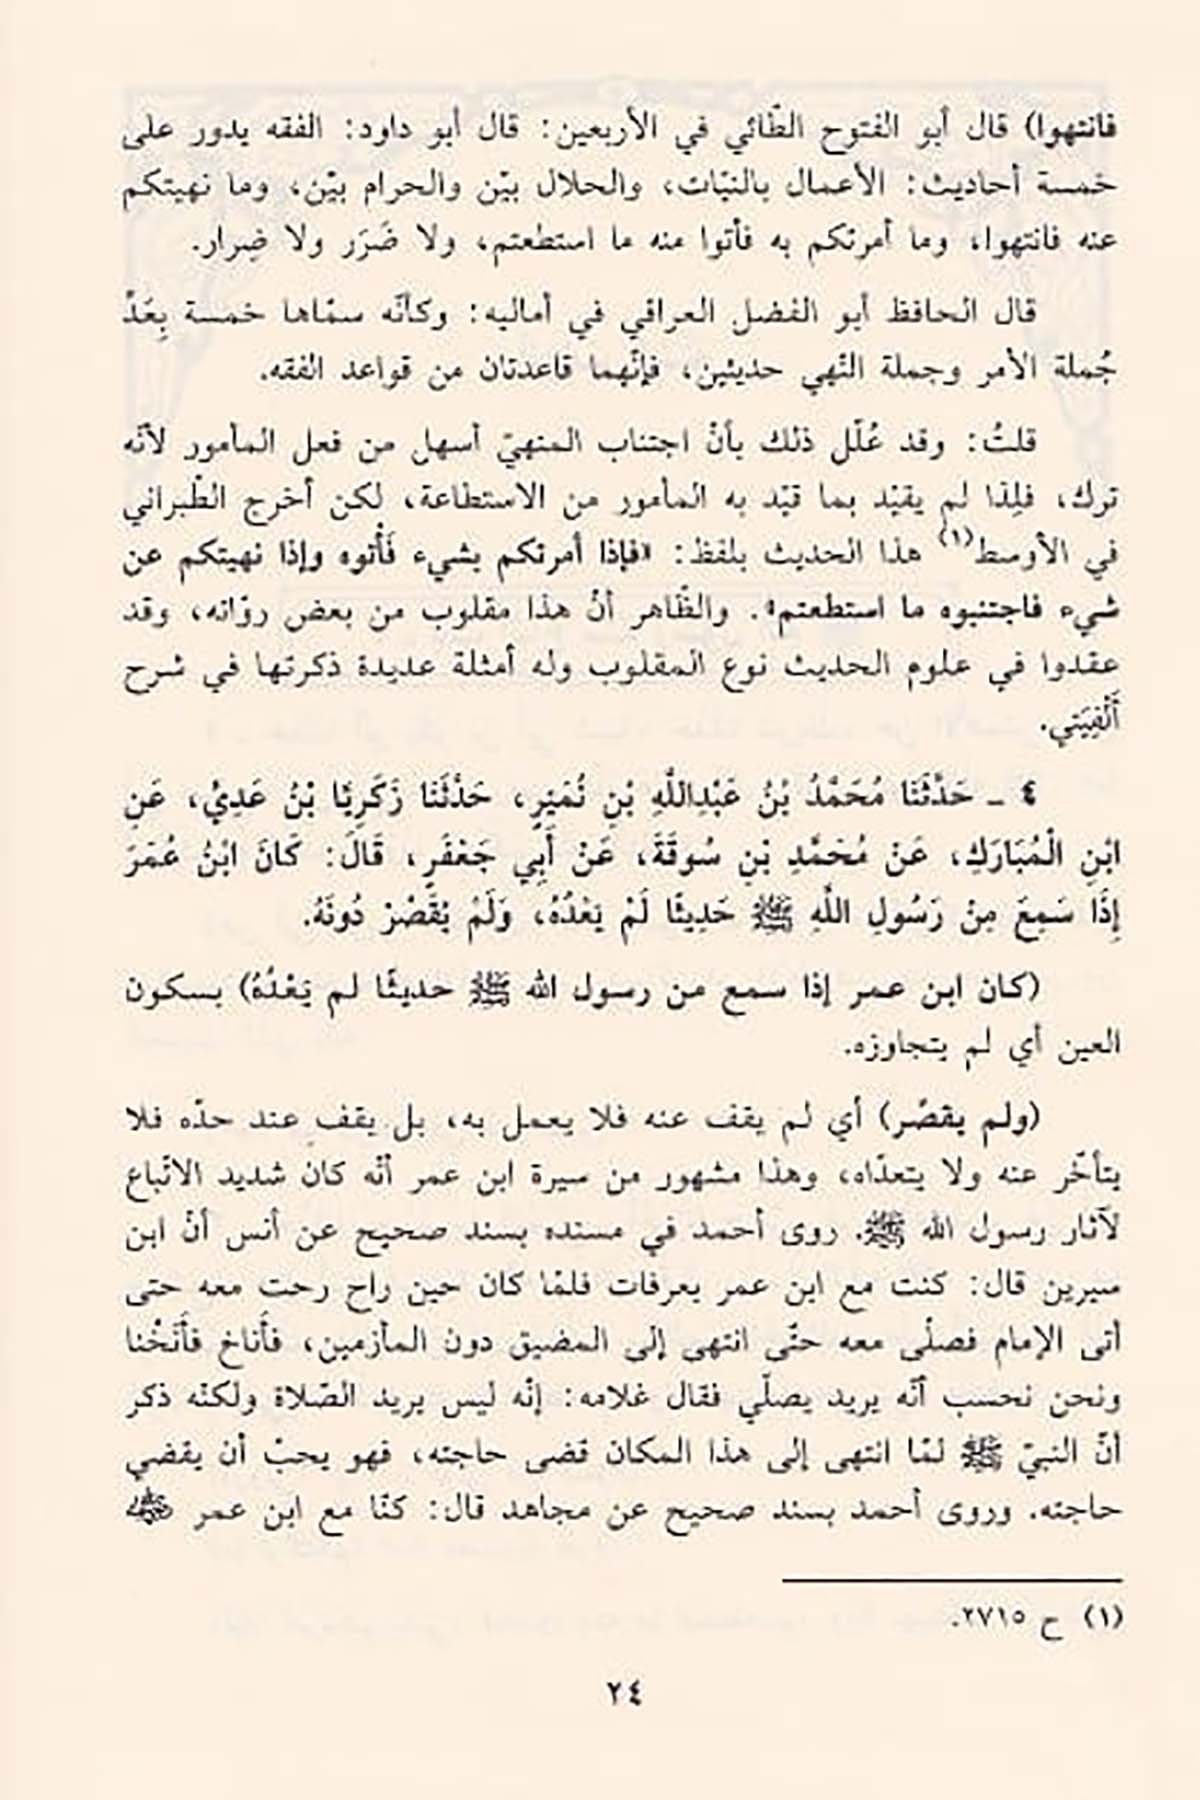 فانتهوا) قال أبو الفتوح الطّائي في الأربعين: قال أبو داود: الفقه يدور على
خمسة أحاديث: الأعمال بالنيّات، والحلال بيّن والحرام بيّن، وما نهيتكم
عنه فانتهوا، وما أمرتكم به فأتوا منه ما استطعتم، ولا ضَرَر ولا ضِرار.
قال الحافظ أبو الفضل العراقي في أماليه: وكأنّه سمّاها خمسة بِعَدِّ
جُملة الأمر وجملة النّهي حديثين، فإنّهما قاعدتان من قواعد الفقه.
قلتُ: وقد عُلّل ذلك بأنّ اجتناب المنهيّ أسهل من فعل المأمور لأنّه
ترك، فلِذا لم يقيّد بما قيّد به المأمور من الاستطاعة، لكن أخرج الطّبراني
في الأوسط(١) هذا الحديث بلفظ: «فإذا أمرتكم بشيء فَأْتوه وإذا نهيتكم عن
شيء فاجتنبوه ما استطعتم». والظّاهر أنّ هذا مقلوب من بعض روّاته، وقد
عقدوا في علوم الحديث نوع المقلوب وله أمثلة عديدة ذكرتها في شرح
أَلْفِيَتي.
٤ ـ حَدَّثَنَا مُحَمَّدُ بْنُ عَبْدِاللَّهِ بْنِ نُمَيْرٍ، حَدَّثَنَا زَكَرِيَّا بْنُ عَدِيٍّ، عَنِ
ابْنِ الْمُبَارَكِ، عَنْ مُحَمَّدِ بْنِ سُوقَةَ، عَنْ أَبِي جَعْفَرٍ، قَالَ: كَانَ ابْنُ عُمَرَ
إِذَا سَمِعَ مِنْ رَسُولِ اللَّهِ ﷺ حَدِيثًا لَمْ يَعْدُهُ، وَلَمْ يُقَصِّرْ دُونَهُ.
(كان ابن عمر إذا سمع من رسول الله ﷺ حديثًا لم يَعْدُهُ) بسكون
العين أي لم يتجاوزه.
(ولم يقصّر) أي لم يقف عنه فلا يعمل به، بل يقف عند حدّه فلا
يتأخّر عنه ولا يتعدّاه، وهذا مشهور من سيرة ابن عمر أنّه كان شديد الاتّباع
لآثار رسول الله ﷺ. روى أحمد في مسنده بسند صحيح عن أنس أنّ ابن
سيرين قال: كنت مع ابن عمر بعرفات فلمّا كان حين راح رحت معه حتى
أتى الإمام فصلّى معه حتّى انتهى إلى المضيق دون المأزمين، فأَناخ فأَنَخْنا
ونحن نحسب أنّه يريد يصلّي فقال غلامه: إنّه ليس يريد الصّلاة ولكنّه ذكر
أنّ النبيّ ﷺ لمّا انتهى إلى هذا المكان قضى حاجته، فهو يحبّ أن يقضي
حاجته. وروى أحمد بسند صحيح عن مجاهد قال: كنّا مع ابن عمر
(١) ح ٢٧١٥.
٢٤